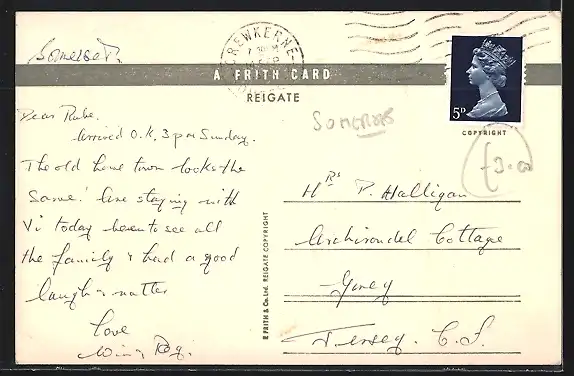 Somerset.
CREWKERNE
A FRITH CARD
REIGATE
5D
COPYRIGHT
SOMERSET
£3.00
Dear Rube.
Arrived O.K. 3 pm Sunday.
The old home town looks the
same! Are staying with
Vi today been to see all
the family & had a good
laugh & natter
Love
Win & Reg.
FRITH & Co. Ltd. REIGATE COPYRIGHT
Mrs P. Halligan
Archirondel Cottage
Gorey
Jersey. C.I.